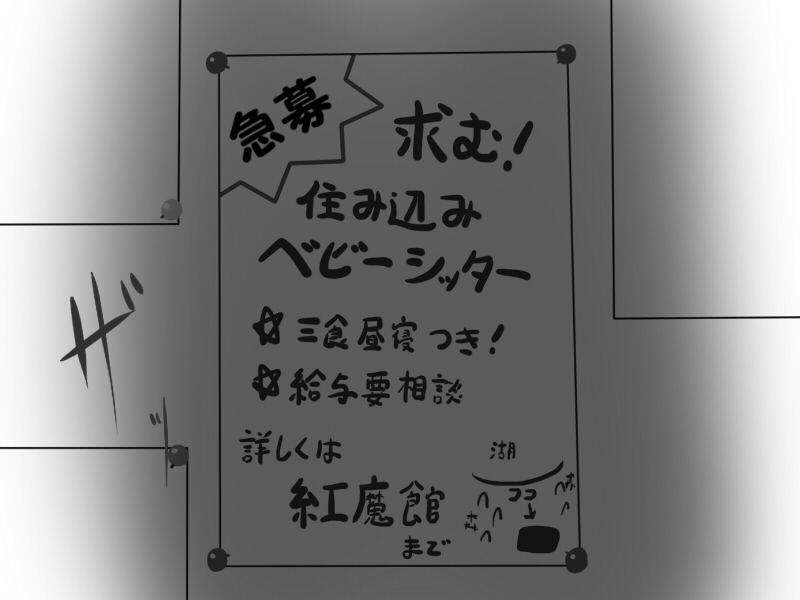 急募
求む!
住み込み
ベビーシッター
☆三食昼寝つき!
☆給与要相談
詳しくは
紅魔館
まで
湖
ココ
↓
ザッ